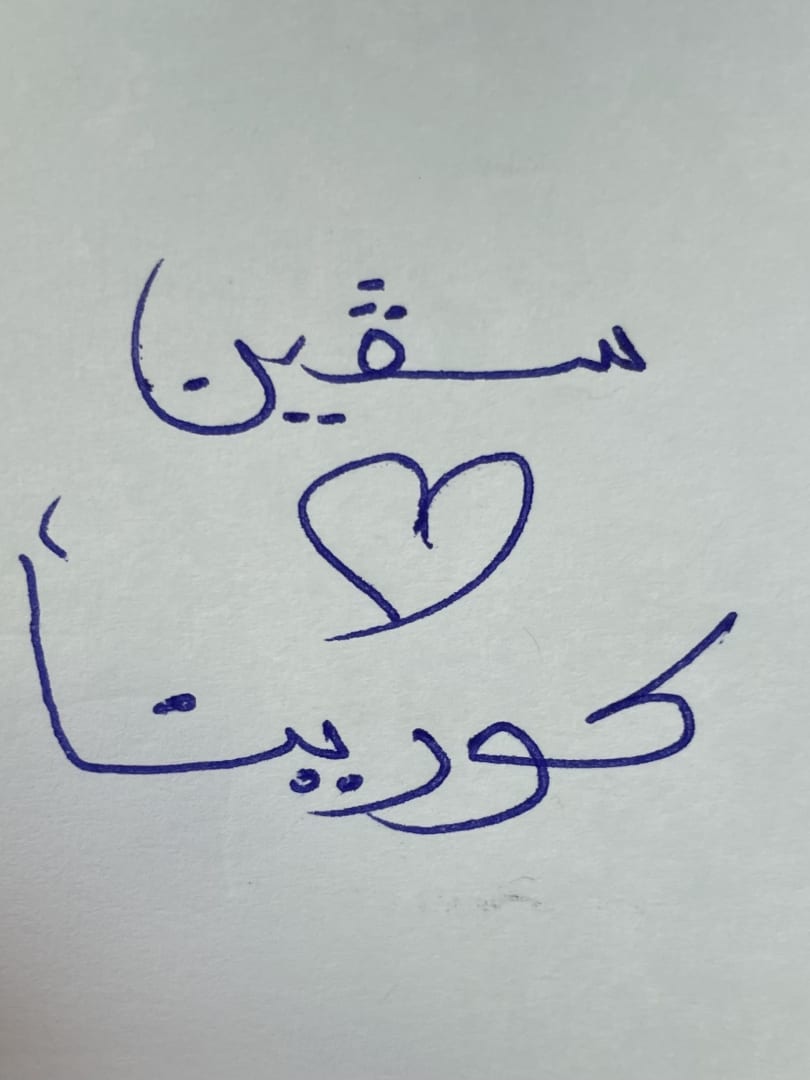 سڤين
كوريتأ